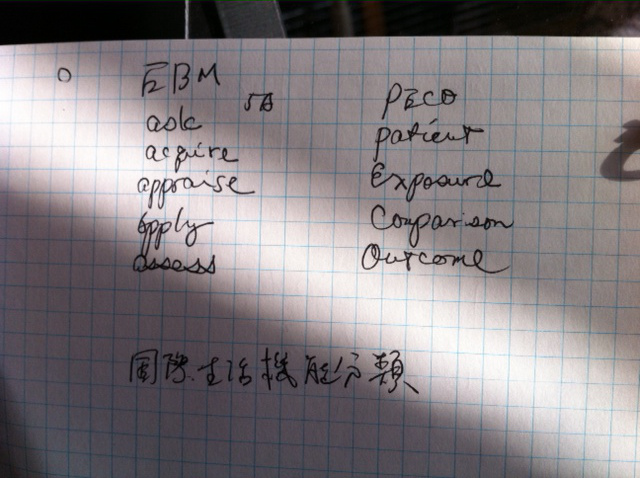 EBM
5A
ask
acquire
appraise
apply
assess
PECO
patient
Exposure
Comparison
Outcome
国際生活機能分類